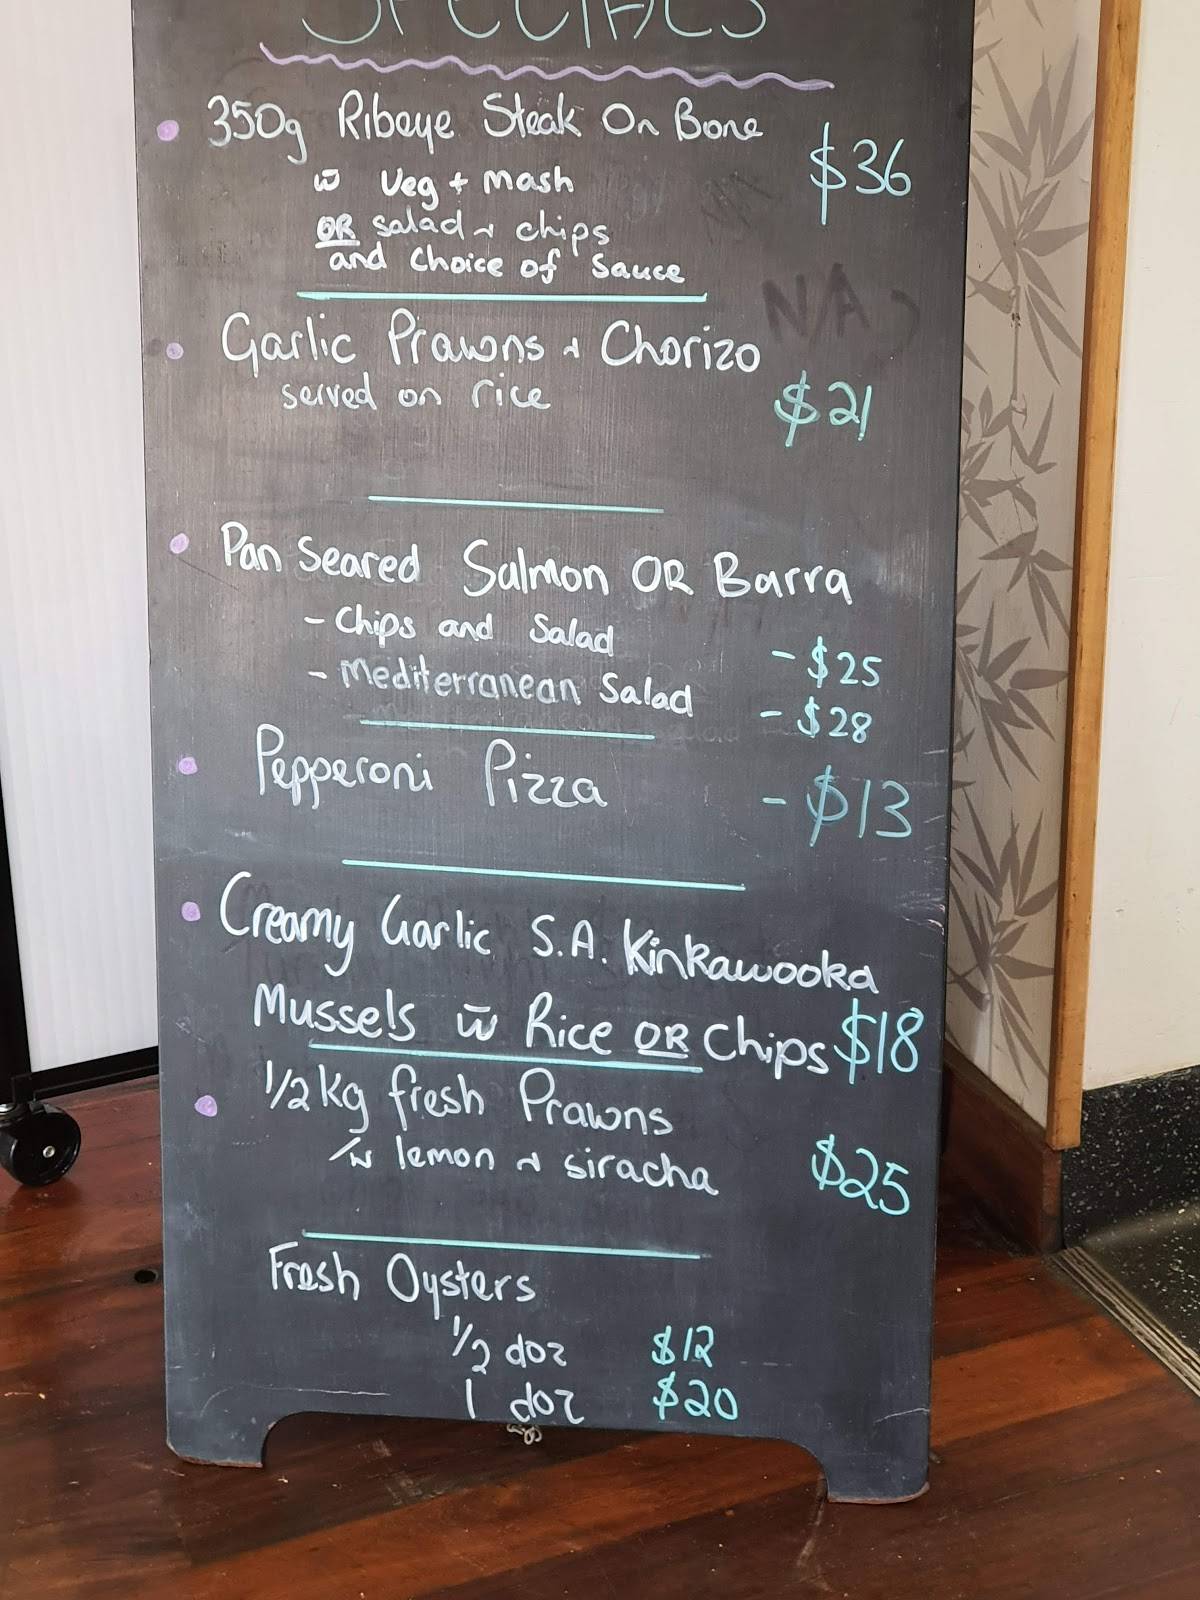 SPECIALS
350g Ribeye Steak On Bone
$36
w̄ Veg + Mash
OR salad + chips
and choice of sauce
N/A
Garlic Prawns + Chorizo
served on rice
$21
Pan Seared Salmon OR Barra
- Chips and Salad - $25
- Mediterranean Salad - $28
Pepperoni Pizza - $13
Creamy Garlic S.A. Kinkawooka
Mussels w̄ Rice OR Chips $18
1/2 kg fresh Prawns
/w lemon + siracha $25
Fresh Oysters
1/2 doz $12
1 doz $20